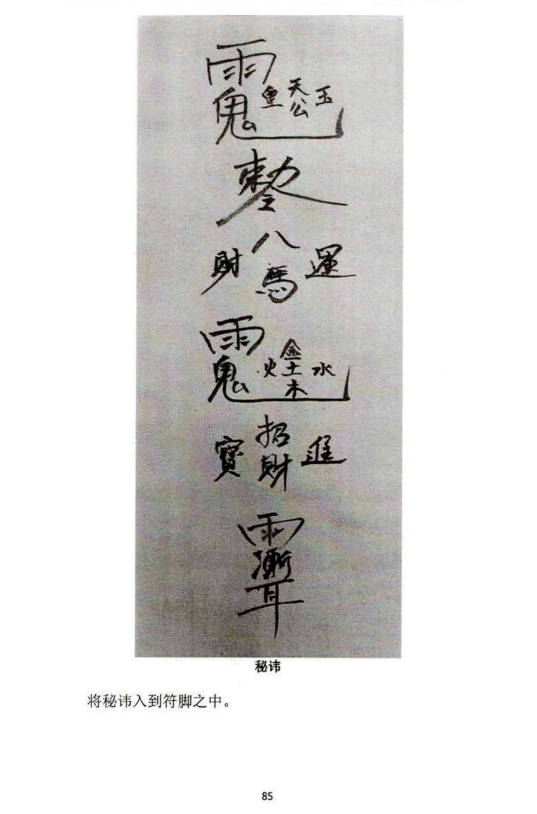 雨
鬼 皇 天公 玉
敕令
財 八馬 運
雨
鬼 火 金土木 水
寶 招財 進
雨漸耳
秘讳
将秘讳入到符脚之中。
85